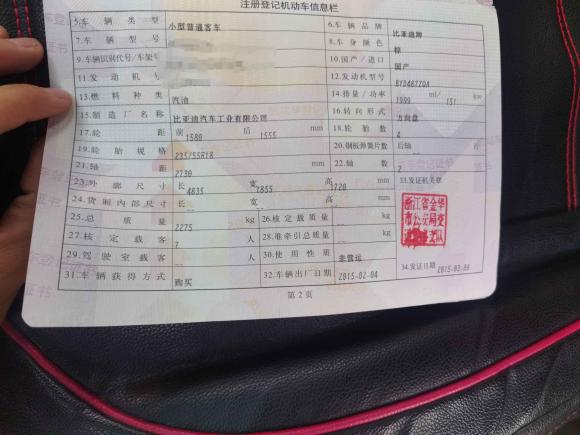 注册登记机动车信息栏
5.车辆类型 小型普通客车 6.车辆品牌 比亚迪牌
7.车辆型号 8.车身颜色 棕
9.车辆识别代号/车架号 10.国产/进口 国产
11.发动机号 12.发动机型号 BYD487ZQA
13.燃料种类 汽油 14.排量/功率 1999 ml/ 151 kw
15.制造厂名称 比亚迪汽车工业有限公司 16.转向形式 方向盘
17.轮距 前 1580 后 1555 mm 18.轮胎数 4
19.轮胎规格 235/55R18 20.钢板弹簧片数 后轴 片
21.轴距 2730 mm 22.轴数 2
23.外廓尺寸 长 4835 宽 1855 高 1720 mm 33.发证机关章
24.货厢内部尺寸 长 -- 宽 -- 高 -- mm
浙江省金华市公安局交通警察支队
25.总质量 2275 kg 26.核定载质量 -- kg
27.核定载客 7 人 28.准牵引总质量 -- kg
29.驾驶室载客 -- 人 30.使用性质 非营运
31.车辆获得方式 购买 32.车辆出厂日期 2015-02-04 34.发证日期 2015-03-09
第2页